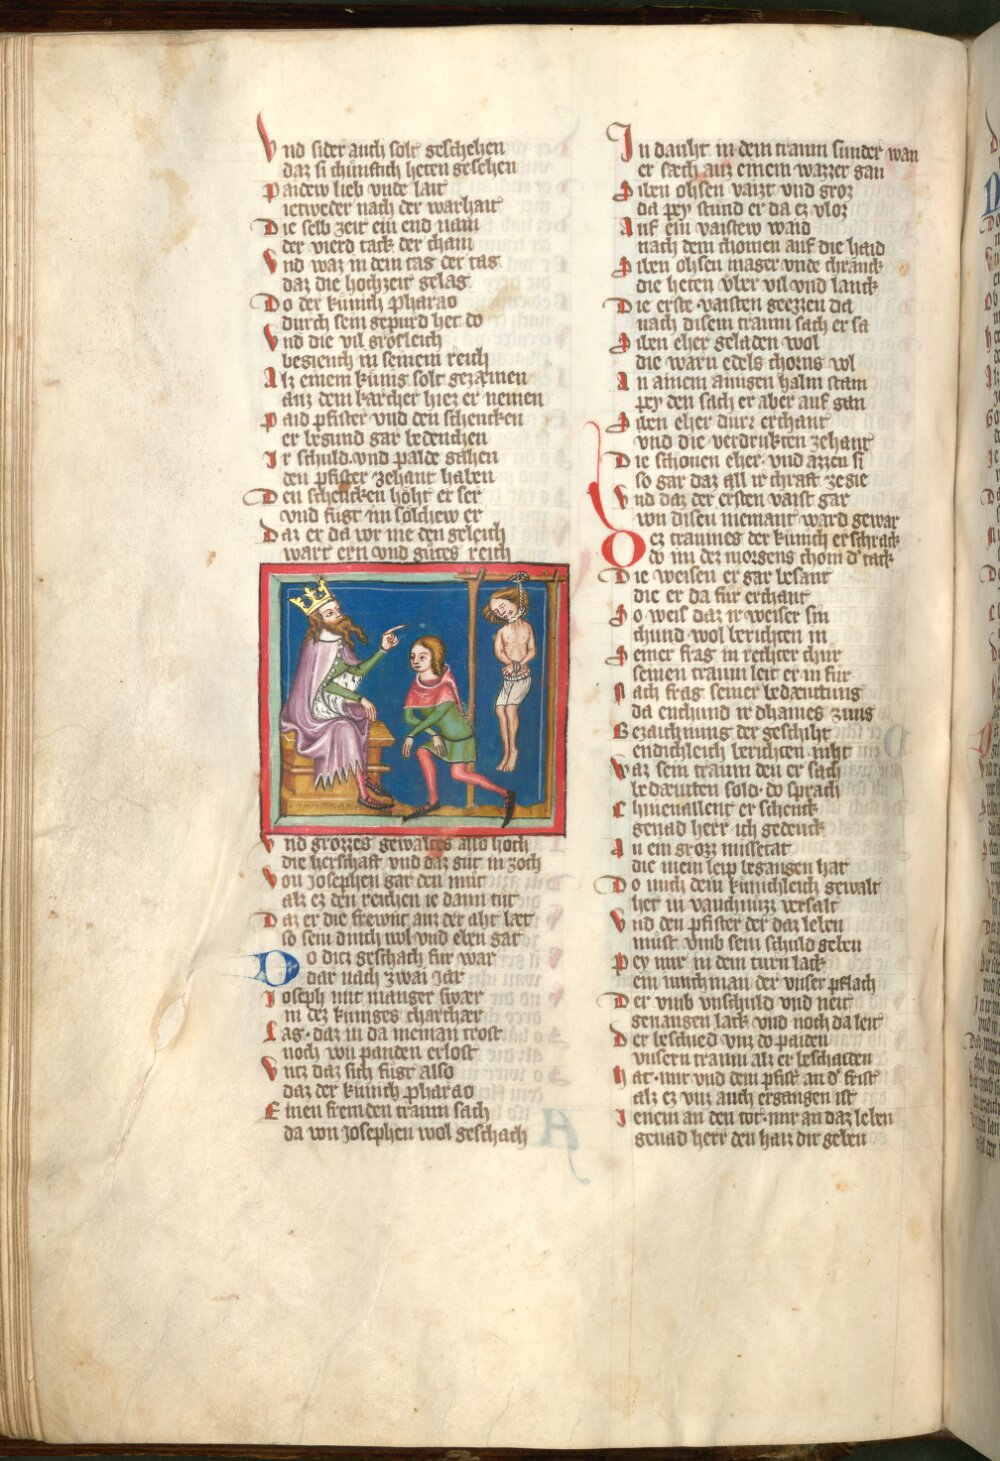 Vnd sider auch solt geschehen
daz si chunftich heten gesehen
Paidew lieb vnde lait
ietweder nach der warhait
Die selb zeit ein end nam
der vierd tack der cham
Vnd waz in dem tag der tag
daz die hochzeit gelag
Do der kunich pharao
durch sein gepurd het do
Vnd die vil grozleich
begiench in seinem reich
Alz einem kunig solt gezæmen
auz dem karcher hiez er nemen
Paid pfister vnd den schencken
er begund gar bedenchen
Ir schuld vnd palde gahen
den pfister zehant hahen
Den schencken hoht er ser
vnd fugt im solchew er
Daz er da vor nie den geleich
wart ern vnd gutes reich
Vnd grozzes gewaltes also hoch
die herschaft vnd daz gut in zoch
Von Josephen gar den mut
alz ez den reichen ie dann tut
Daz er die frewnt auz der aht læt
so sein dinch wol vnd eben gat
Do diez geschach fur war
dar nach zwai Jar
Joseph mit manger swær
in dez kuniges charchær
Lag daz in da nieman trost
noch von panden erlost
Vntz daz sich fugt also
daz der kunich pharao
Einen fremden traum sach
da von Josephen wol geschach
In daucht in dem traum sunder wan
er sæch auz einem wazzer gan
Siben ohsen vaizt vnd groz
da pey stund er da ez vloz
Auf ein vaistew waid
nach dem chomen auf die haid
Siben ohsen mager vnde chranck
die heten vber vil vnd lanck
Die erste vaisten geezzen da
nach disem traum sach er sa
Siben eher geladen wol
die warn edels chorns vol
An ainem ainigen halm stan
pey den sach er aber auf gan
Siben eher durz erchant
vnd die verdrukten zehant
Die schonen eher vnd azzen si
so gar daz all ir chraft zegie
Vnd daz der ersten vaist gar
von disen niemant ward gewar
Dez traumes der kunich erschrack
do im dez morgens chom d' tack
Die weisen er gar besant
die er da fur erchant
So weis daz ir weiser sin
chund wol berichten in
Seiner frag in rechter chur
seinen traum leit er in fur
Nach frag seiner bedæutung
da enchund ir dhaines zung
Bezaichnung der geschiht
endichleich berichten niht
Waz sein traum den er sach
bedæuten sold do sprach
Chuneallent er schenck
genad herr ich gedenck
An ein grozz missetat
die mein leip begangen hat
Do mich dein kunichleich gewalt
het in vanchnuzz versalt
Vnd den pfister der daz leben
must vmb sein schuld geben
Pey mir in dem turn lack
ein man der vnser pflach
Der vmb vnschuld vnd neit
geuangen lack vnd noch da leit
Der beschied vnz do paiden
vnsern traum alz er beschaiden
Hat mir vnd dem pfist' an d' frist
alz ez vnz auch ergangen ist
Jenem an den tot mir an daz leben
genad herr den haiz dir geben